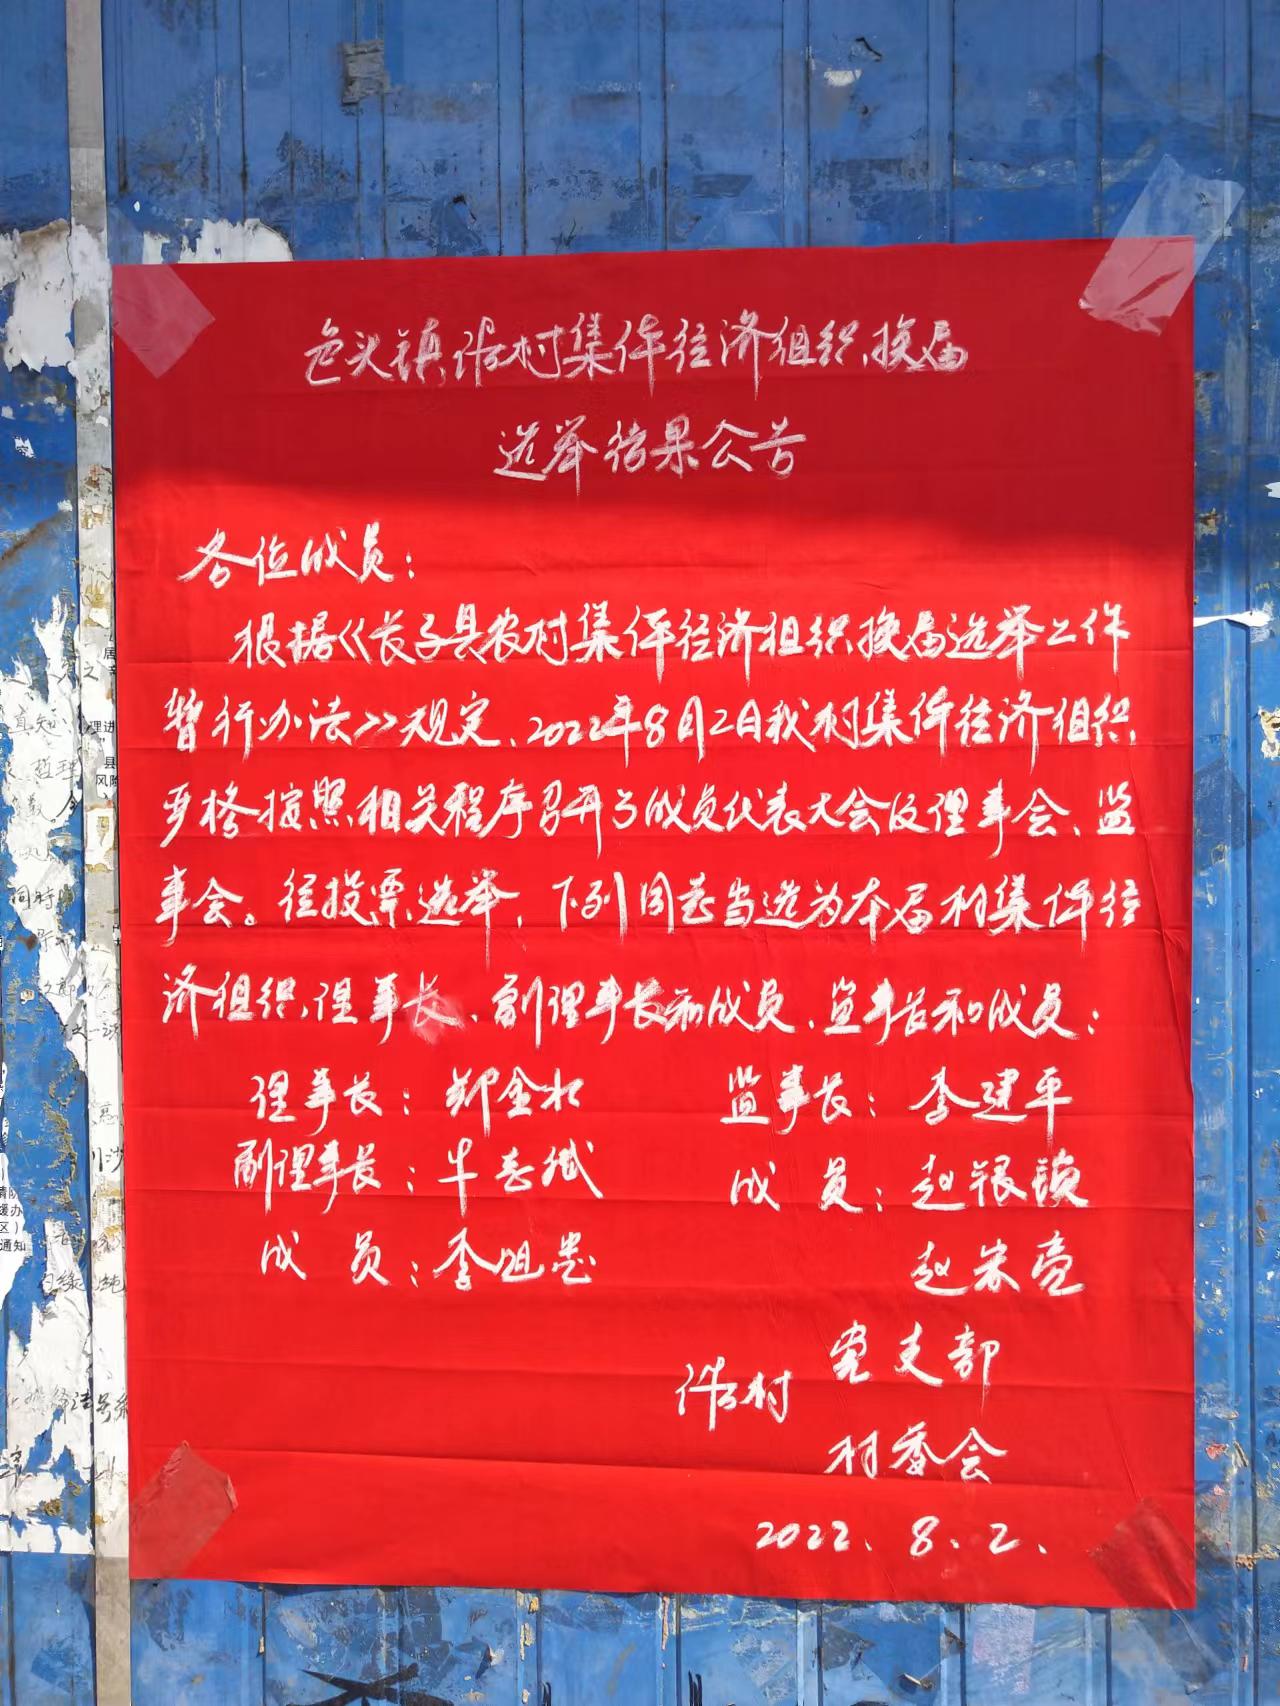 镇 村集体经济组织换届
选举结果公告
各位成员：
根据《长子县农村集体经济组织换届选举工作
暂行办法》规定、2022年8月2日我村集体经济组织，
严格按照相关程序召开了成员代表大会及理事会、监
事会。经投票选举，下列同志当选为本届村集体经
济组织理事长、副理事长和成员、监事长和成员：
理事长：郑金水 监事长：李建平
副理事长：牛志斌 成 员：赵银锁
成 员：李旭 赵 亮
村 党支部
村委会
2022、8、2、